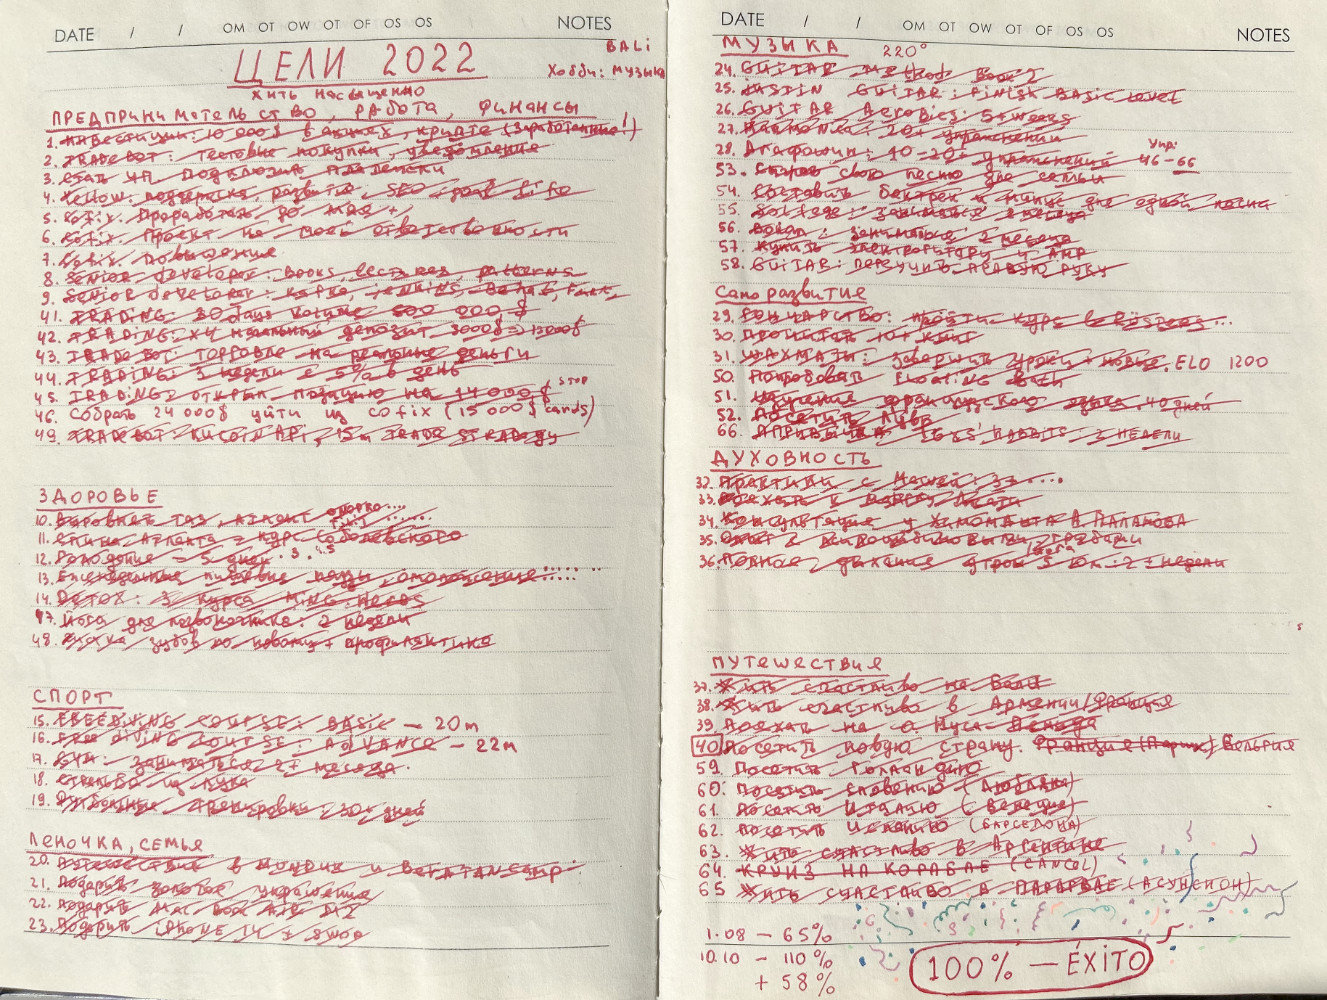 DATE / / OM OT OW OT OF OS OS NOTES
ЦЕЛИ 2022
BALi
жить насыщенно
Хобби: музыка
ПРЕДПРИНИМАТЕЛЬСТВО, РАБОТА, ФИНАНСЫ
1. Инвестиции: 10 000$ в акциях, крипте (заработанные!)
2. TRADE BOT: тестовые покупки, уведомления
3. Стать ЧП подключить платежки
4. Yellow: поддержка, развитие. SEO, goal life
5. Cofix. Проработать до мая +
6. Cofix. Проект на моей ответственности
7. Cofix. Повышение
8. SENIOR developer: Books, lectures, patterns
9. SENIOR developer: Kafka, jenkins,
41. TRADING: 30 days Volume 600 000 $
42. TRADING: x4 начальный депозит 3000$ => 12000$
43. TRADE BOT: торговля на реальные деньги
44. TRADING: 3 недели с 5% в день
45. TRADING: открыл позицию на 14 000 $ STOP
46. Собрать 24 000$ уйти из cofix (15 000$ cards)
49. TRADE BOT: KUCOIN API, 15m TRADE STRATEGY
ЗДОРОВЬЕ
10. Выровнять таз, атлант
11. Спина, Атланта = курс Соболевского
12. Голодание = 5 дней. 3. 4.5
13. Ежедневные пищевые паузы, омоложение
14. DETOX: 3 курса
47. Йога для позвоночника: 2 недели
48. Чистка зубов по новому + профилактика
СПОРТ
15. FREEDIVING COURSE: BASIC – 20m
16. FREE DIVING COURSE: ADVANCE – 22m
17. GYM: заниматься 2+ месяца.
18. Стрельба из лука
19. Футбольные тренировки: 30+ дней
ЛЕНОЧКА, СЕМЬЯ
20. Путешествие в Мундук и
21. Подарить золотое украшение
22. Подарить Mac Book AIR M2
23. Подарить iPHONE 14 +
DATE / / OM OT OW OT OF OS OS NOTES
МУЗЫКА 220°
24. GUITAR Method Book 1
25. JUSTIN GUITAR: FINISH BASIC Level
26. GUITAR Aerobics: 5+ weeks
27. Harmonica: 20+ упражнений
28. Агафошин: 10-20+ упражнений Упр: 46-66
53. свою песню для семьи
54. Составить бектрек и танцы для одной песни
55. Solfege: заниматься 2 месяца
56. Вокал: заниматься 2 месяца
57. Купить электрогитару и AMP
58. GUITAR: ПЕРЕУЧИТЬ ПРАВУЮ РУКУ
Саморазвитие
29. ГОНЧАРСТВО: пройти курс
30. Прочитать 10+ книг
31. ШАХМАТЫ: завершить уроки + новые. ELO 1200
50. Попробовать Floating Bath
51. Изучение французского языка. 40 дней
52. Посетить Лувр
66. HABBITS: 2 НЕДЕЛИ
ДУХОВНОСТЬ
32. Практики с Машей: 3
33. Поехать к
34. Консультация у Хиломанта В. Паланова
35. Опыт с псилоцибиновыми грибами
36. Полное дыхание утром 5-10м: 2+ недели йога
ПУТЕШЕСТВИЯ
37. Жить счастливо на Бали
38. Жить счастливо в Армении/Франция
39. Поехать на о. Нуса-Пенида
40. Посетить новую страну. Франция (Париж) Бельгия
59. Посетить Голландию
60. Посетить Словению (Любляна)
61. Посетить Италию (Венеция)
62. Посетить Испанию (БАРСЕЛОНА)
63. Жить счастливо в Аргентине
64. КРУИЗ НА КОРАБЛЕ (CANCEL)
65 Жить счастливо в ПАРАГВАЕ (АСУНСЬОН)
1.08 – 65%
10.10 – 110%
+ 58%
100% – ÉXITO